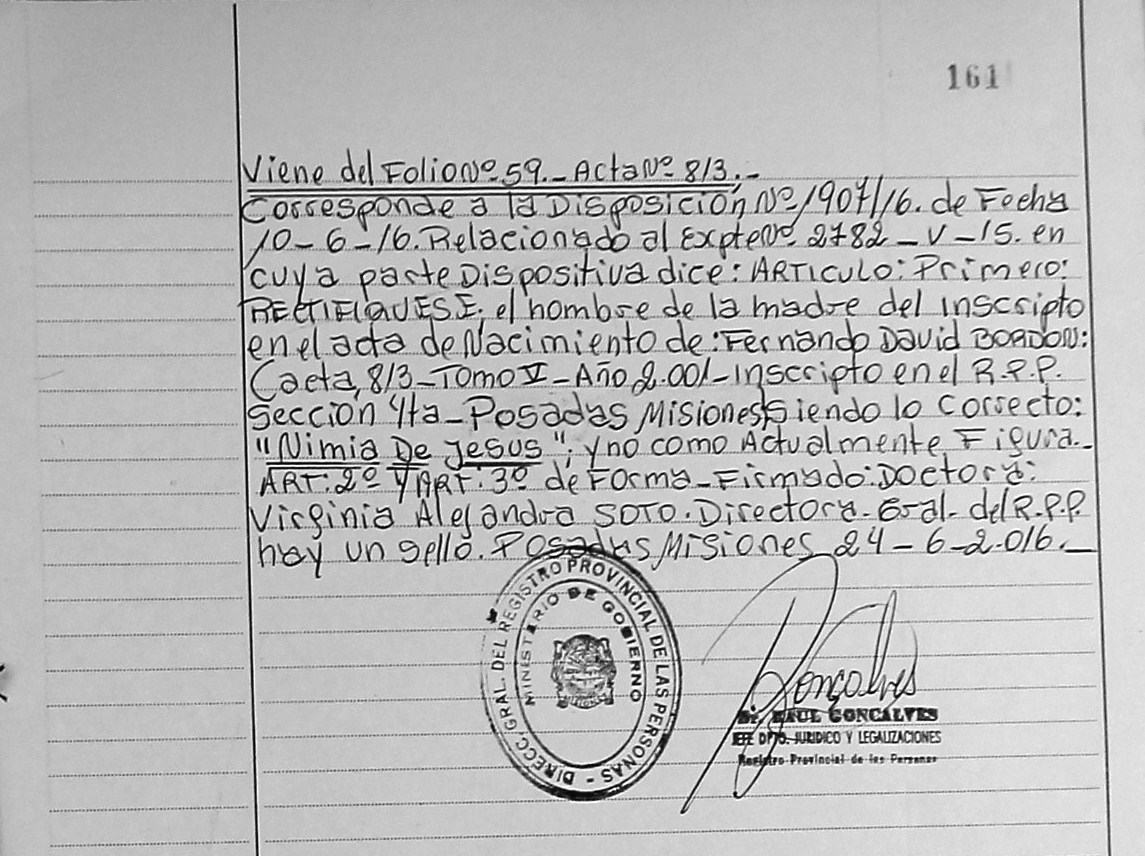 161
Viene del Folio Nº 59.- Acta Nº 813.-
Corresponde a la Disposición, Nº 1907/16. de Fecha
10-6-16. Relacionado al Expte Nº 2782-V-15. en
cuya parte Dispositiva dice: ARTICULO: Primero:
RECTIFIQUESE: el nombre de la madre del inscripto
en el acta de Nacimiento de: Fernando David BORDON:
(acta, 813-Tomo V-Año 2.001-Inscripto en el R.P.P.
Sección 4ta-Posadas Misiones) Siendo lo correcto:
"Nimia De Jesus"; y no como Actualmente Figura.-
ART: 2º Y ART: 3º de Forma-Firmado: Doctora:
Virginia Alejandra SOTO. Directora. Gral. del R.P.P.
hay un sello. Posadas Misiones 24-6-2.016.-
DIRECC. GRAL. DEL REGISTRO PROVINCIAL DE LAS PERSONAS -
MINISTERIO DE GOBIERNO
Goncalves
Dr. RAUL GONCALVES
JEFE DPTO. JURIDICO Y LEGALIZACIONES
Registro Provincial de las Personas